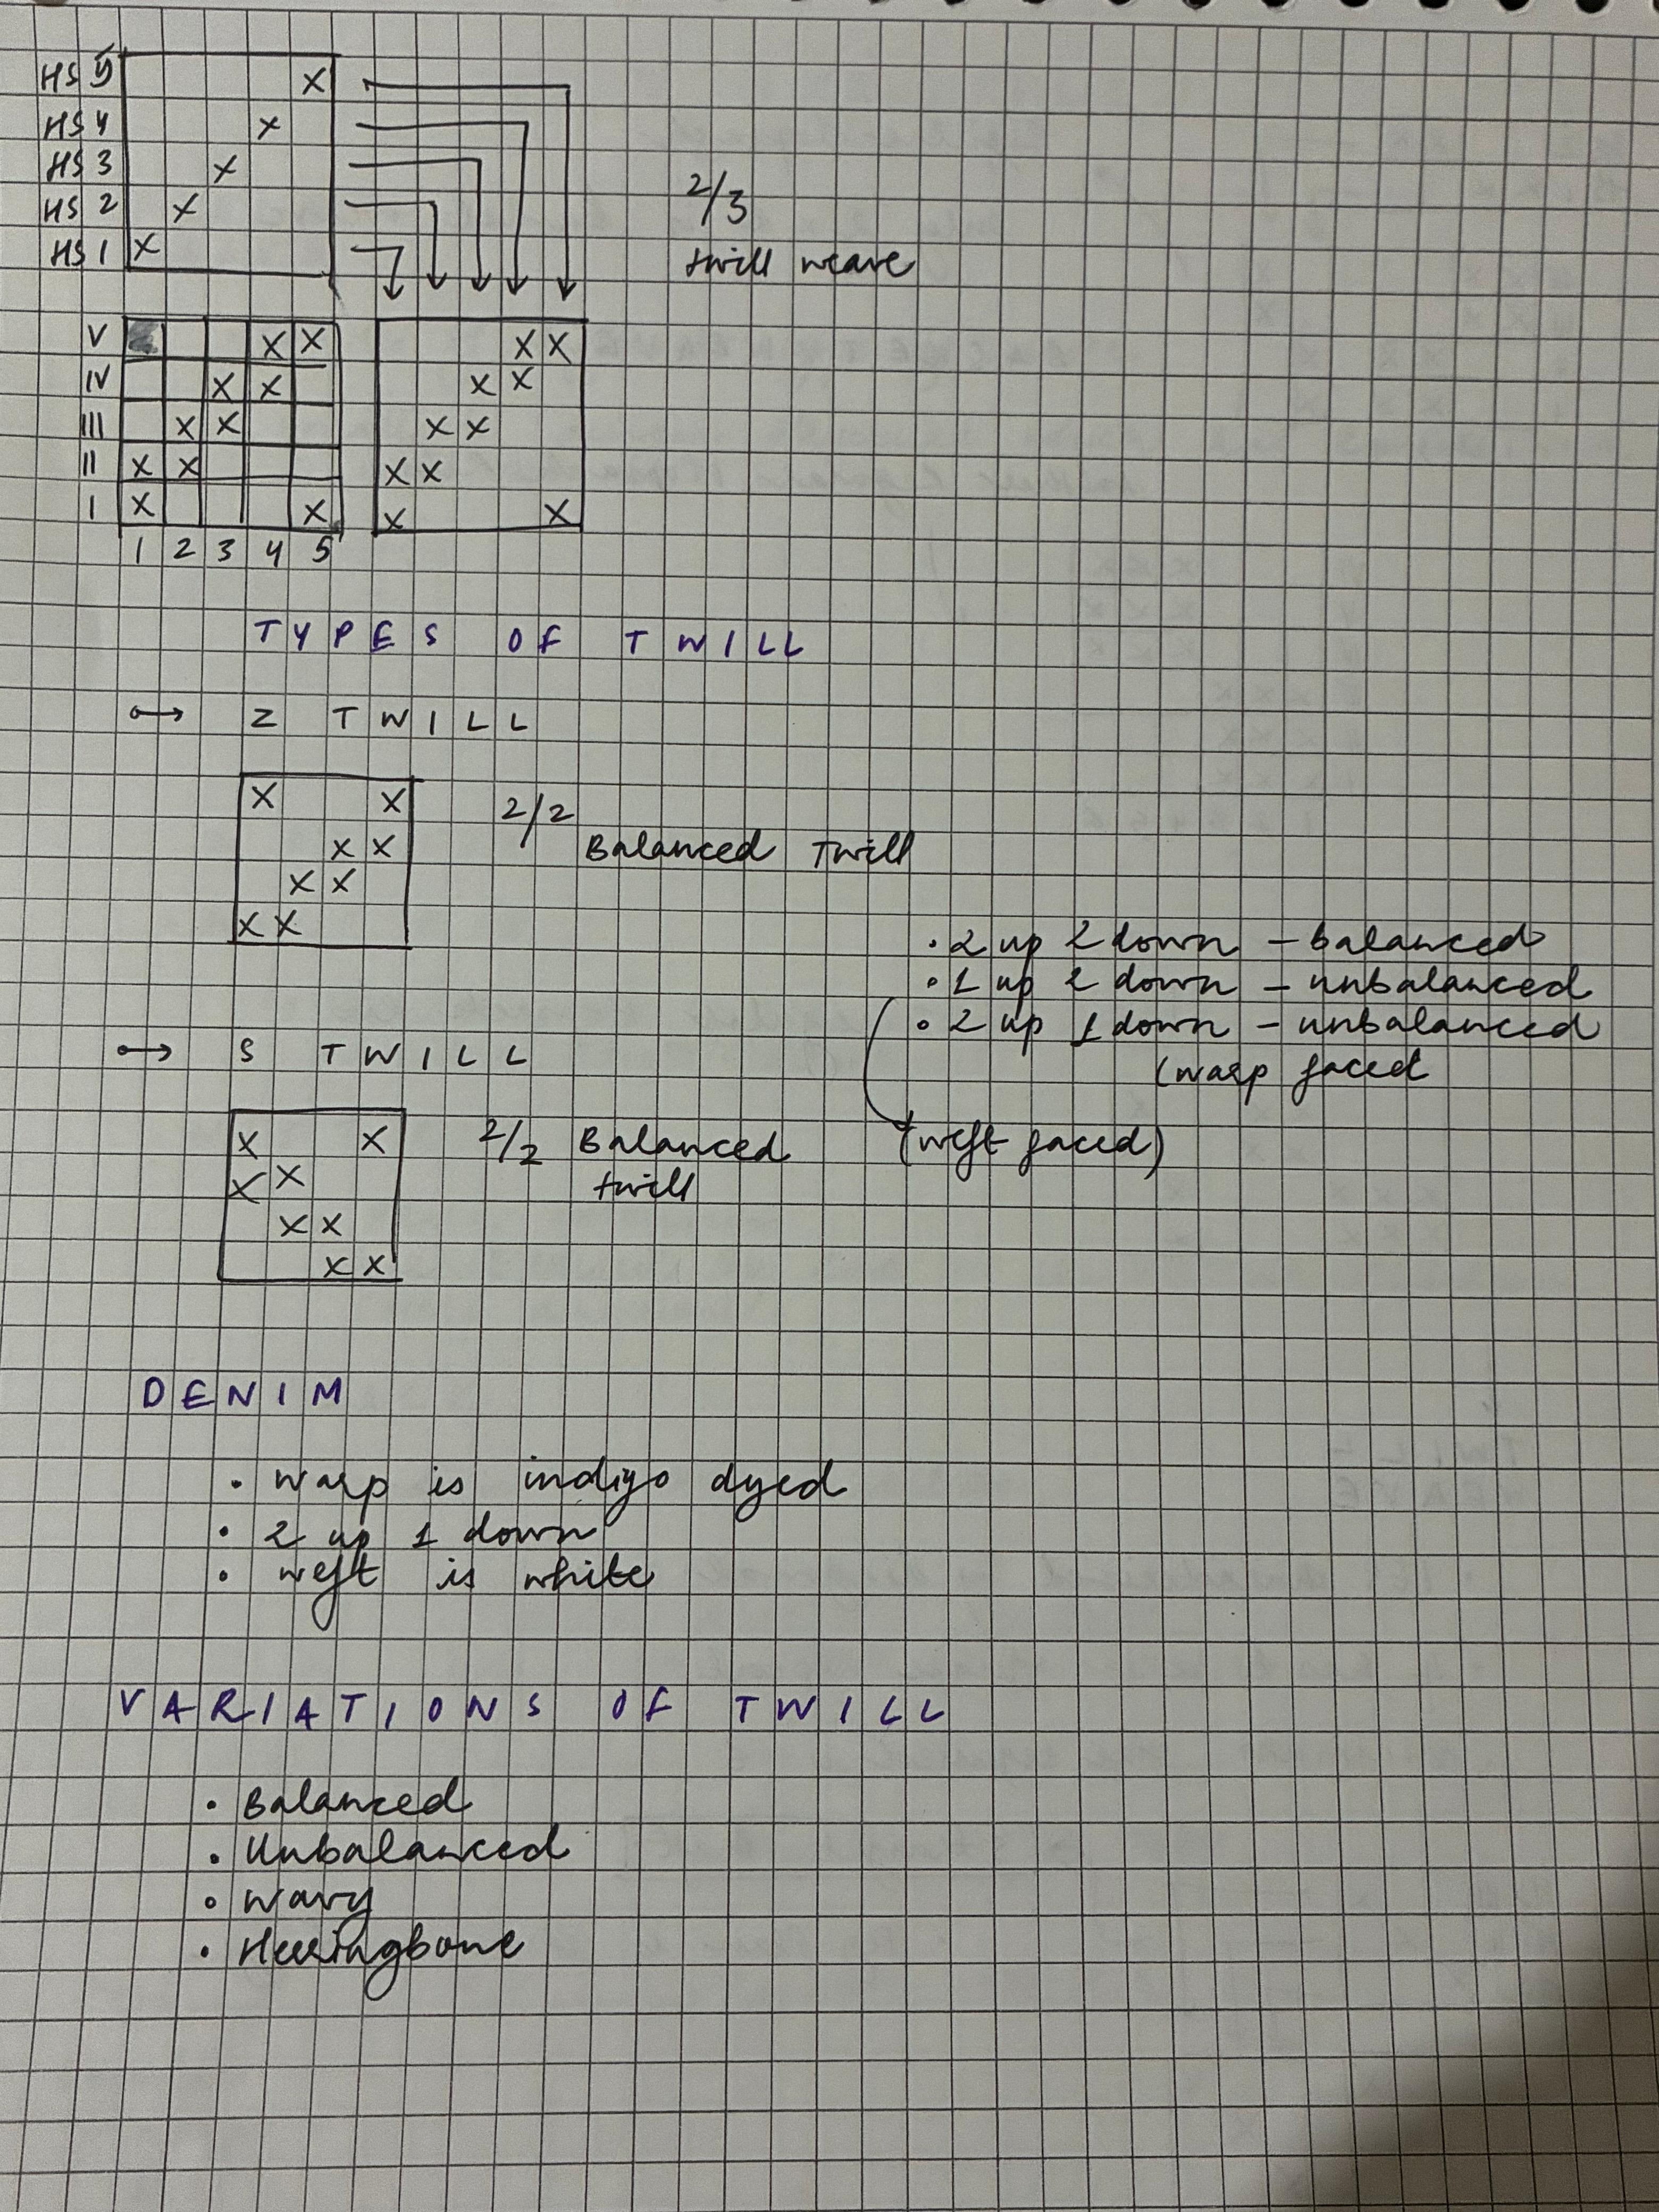 HS 5 X
HS 4 X
HS 3 X
HS 2 X
HS 1 X
2/3
twill weave
V X X X X
IV X X X X
III X X X X
II X X X X
I X X X X
1 2 3 4 5
TYPES OF TWILL
Z TWILL
X X
X X
X X
X X
2/2
Balanced Twill
• 2 up 2 down - balanced
• 1 up 2 down - unbalanced
• 2 up 1 down - unbalanced
(warp faced
(weft faced)
S TWILL
X X
X X
X X
X X
2/2 Balanced
twill
DENIM
• warp is indigo dyed
• 2 up 1 down
• weft is white
VARIATIONS OF TWILL
• Balanced
• Unbalanced
• Wavy
• Herringbone